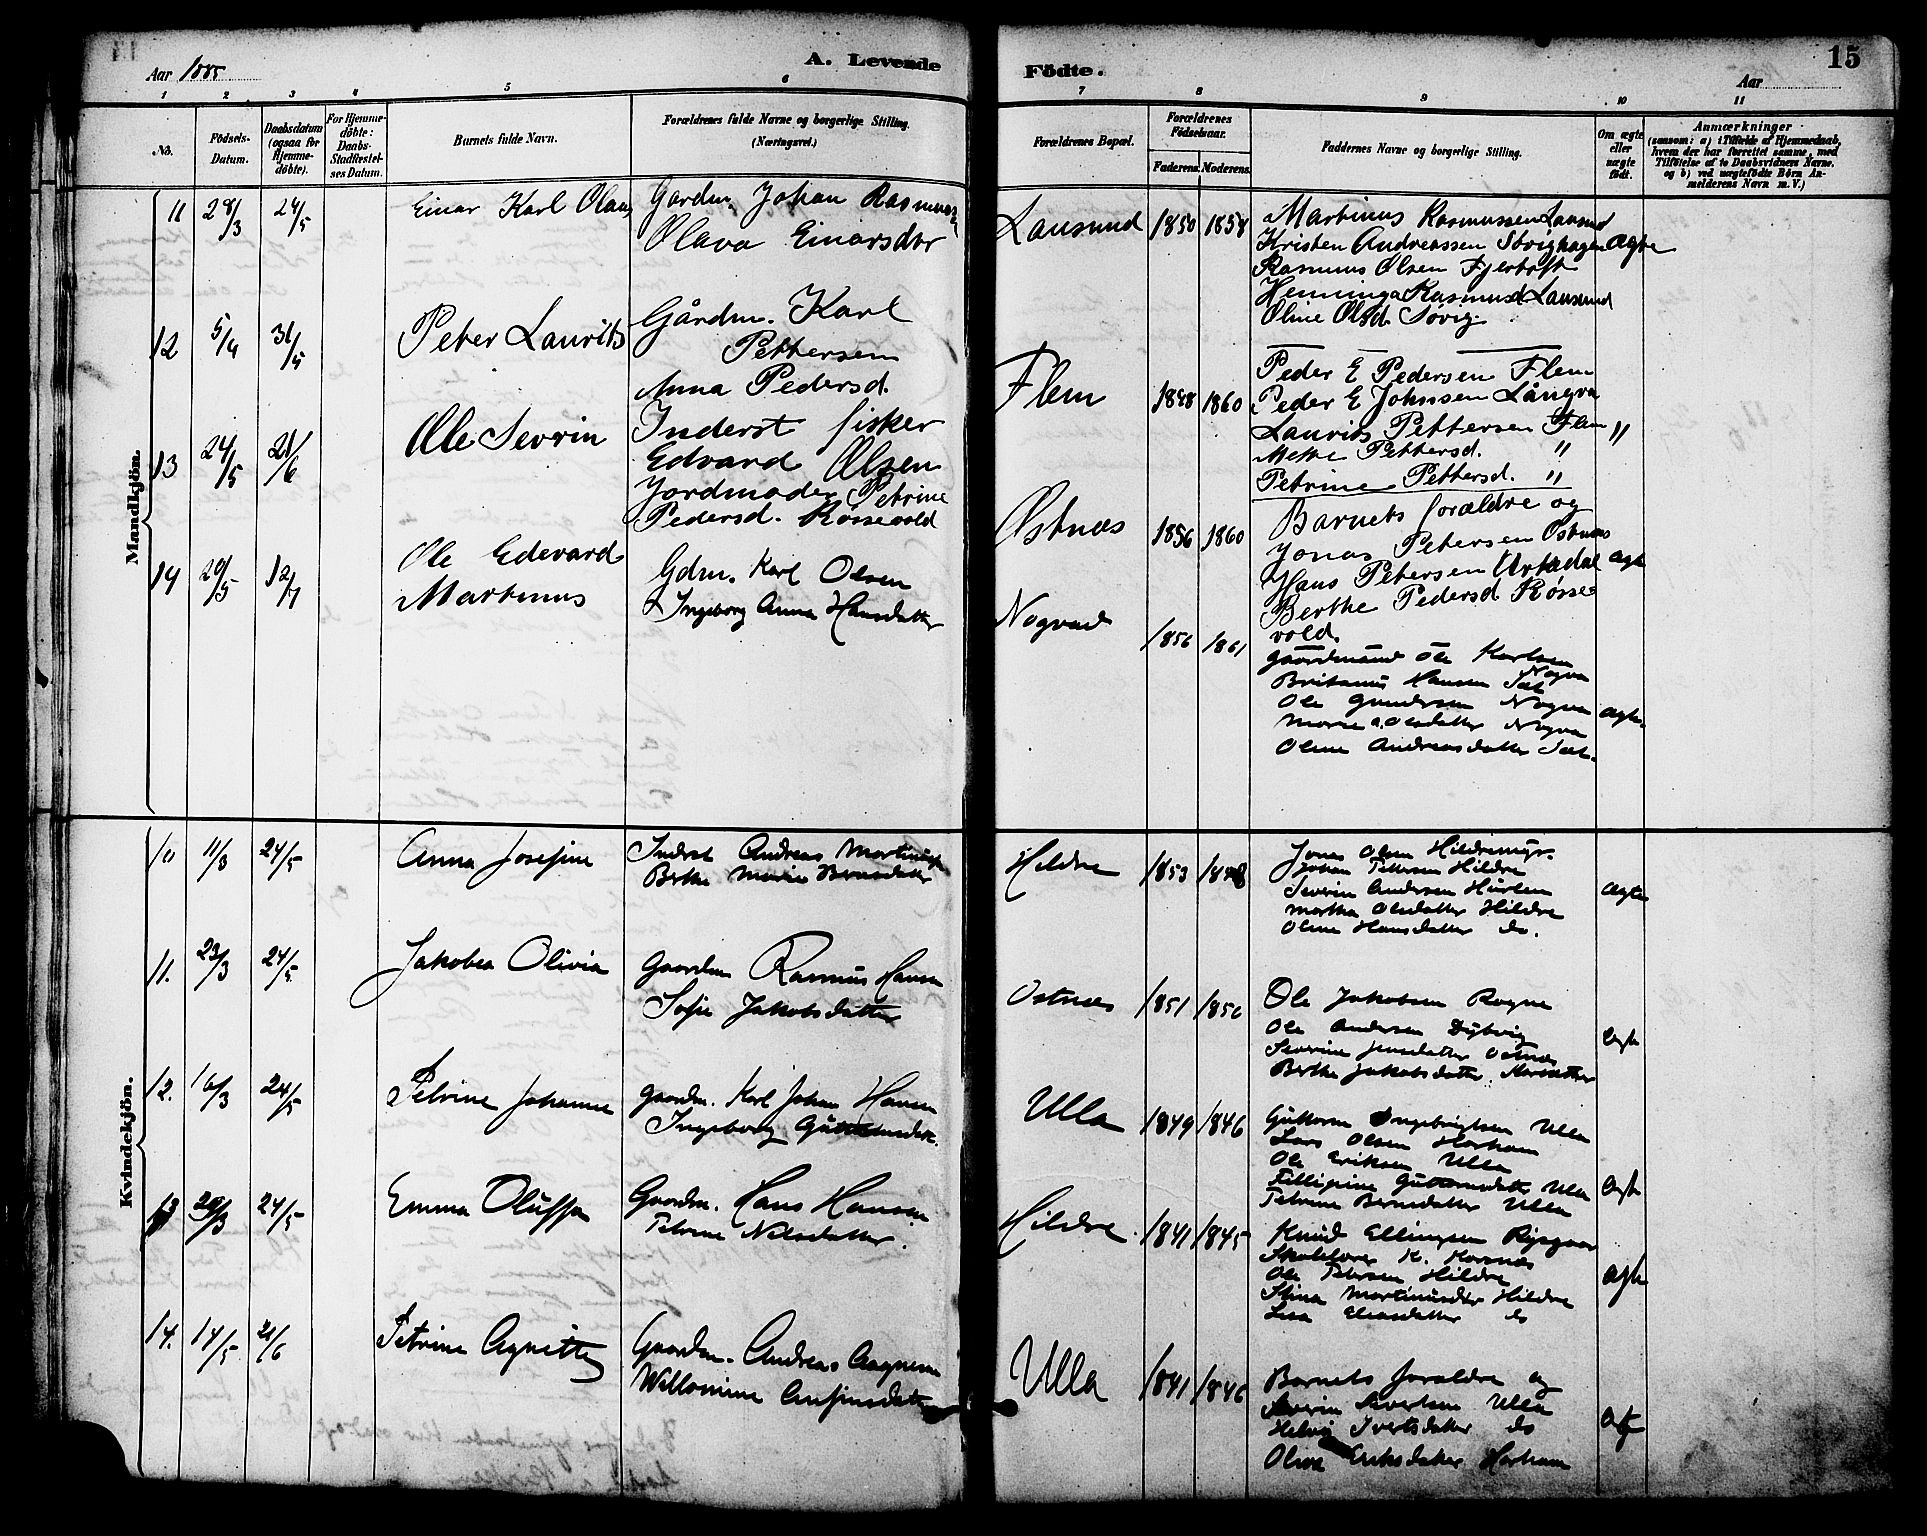 15
Aar 1885
A. Levende Födte.
Aar
1 2 3 4 5 6 7 8 9 10 11
No.
Fødsels-Datum.
Daabsdatum (ogsaa for Hjemmedøbte).
For Hjemmedøbte: Daabs-Stadfæstelses Datum.
Barnets fulde Navn.
Forældrenes fulde Navne og borgerlige Stilling. (Næringsvei.)
Forældrenes Bopæl.
Forældrenes Fødselsaar.
Faderens. Moderens.
Faddernes Navne og borgerlige Stilling.
Om ægte eller uægte født.
Anmærkninger
(saasom: a) i Tilfælde af Hjemmedaab, hvem der har forrettet samme, med Tilføielse af to Daabsvidners Navne, og b) ved uægtefødte Børn Anmelderens Navn m. V.)
Mandkjön.
11 28/3 24/5 Einar Karl Olaus
Gardm. Johan Rasmussen
Olava Einarsdtr
Lausund 1850 1858
Martinus Rasmussen Lausund
Kristen Andreassen Søvighagen ægte
Rasmus Olsen Fjertoft
Henninga Rasmusd Lausund
Oline Olsd. Søvig.
12 5/4 31/5 Peter Laurits
Gårdm. Karl
Pettersen
Anna Pedersd.
Flem 1848 1860
Peder E Pedersen Flem
Peder E Johnsen Långva
Laurits Pettersen Flem "
Mette Pettersd. "
Petrine Pettersd. "
13 24/5 21/6 Ole Sevrin
Inderst fisker
Edvard Olsen
Jordmoder Petrine
Pedersd. Røssevold
Østnæs 1856 1860
Barnets forældre og
Jonas Petersen Østnæs
Hans Petersen Urkedal ægte
Berthe Pedersd Røsse
vold.
14 20/5 12/7 Ole Edevard
Martinus
Gdm. Karl Olsen
& Ingeborg Anna Hansdatter
Nogvad 1856 1861
gaardmænd Ole Karlsen
Nogva
Britanus Hansen Sæt
Ole Gundersen Nogva ægte.
Marie A. Olsdatter Nogva
Oline Andreasdatter Sæt.
Kvindekjön.
10 11/3 24/5 Anna Josefine
Inderst Andreas Martinus
Berthe Marie Berntsdatter
Hildre 1853 1848
Jonas Olsen Hildremyr.
Johan Petersen Hildre
Severin Andersen Hurlen ægte
Martha Olsdatter Hildre
Oline Hansdatter do.
11. 23/3 24/5 Jakobea Olivia
Gaardm Rasmus Hansen
Sofie Jakobsdatter
Ostnæs 1851 1850
Ole Jakobsen Rogne
Ole Andersen Dybvig
Severine Jensdatter Ostnæs ægte
Berthe Jakobsdatter
12. 16/3 24/5 Petrine Johanne
gaardm. Karl Johan Hansen
Ingeborg Guttormsdtr.
Ulla 1849 1846
Guttorm Ingebrigtsen Ulla
Lars Olsen Harham
Ole Eriksen Ulla
Fillipine Guttormsdatter Ulla ægte
Petrine Berntsdatter Ulla
13 29/3 24/5 Emma Oluffa
Gaardm. Hans Hansen
Petrine Nilsdatter.
Hildre 1841 1845
Knud Ellingsen
Skolelærer K. Hovsnæs
Ole Petersen Hildre ægte
Stina Martinusdtr Hildre
Lisa Eliasdatter do
14. 14/5 21/6 Petrine Agnitte
Gaardm. Andreas Aagesen
Willomine Anfinsdatter
Ulla 1841 1846
Barnets forældre og
Severin Sivertsen Ulla
Helvig Ivertsdatter do ægte
Oliva Eriksdatter Harham